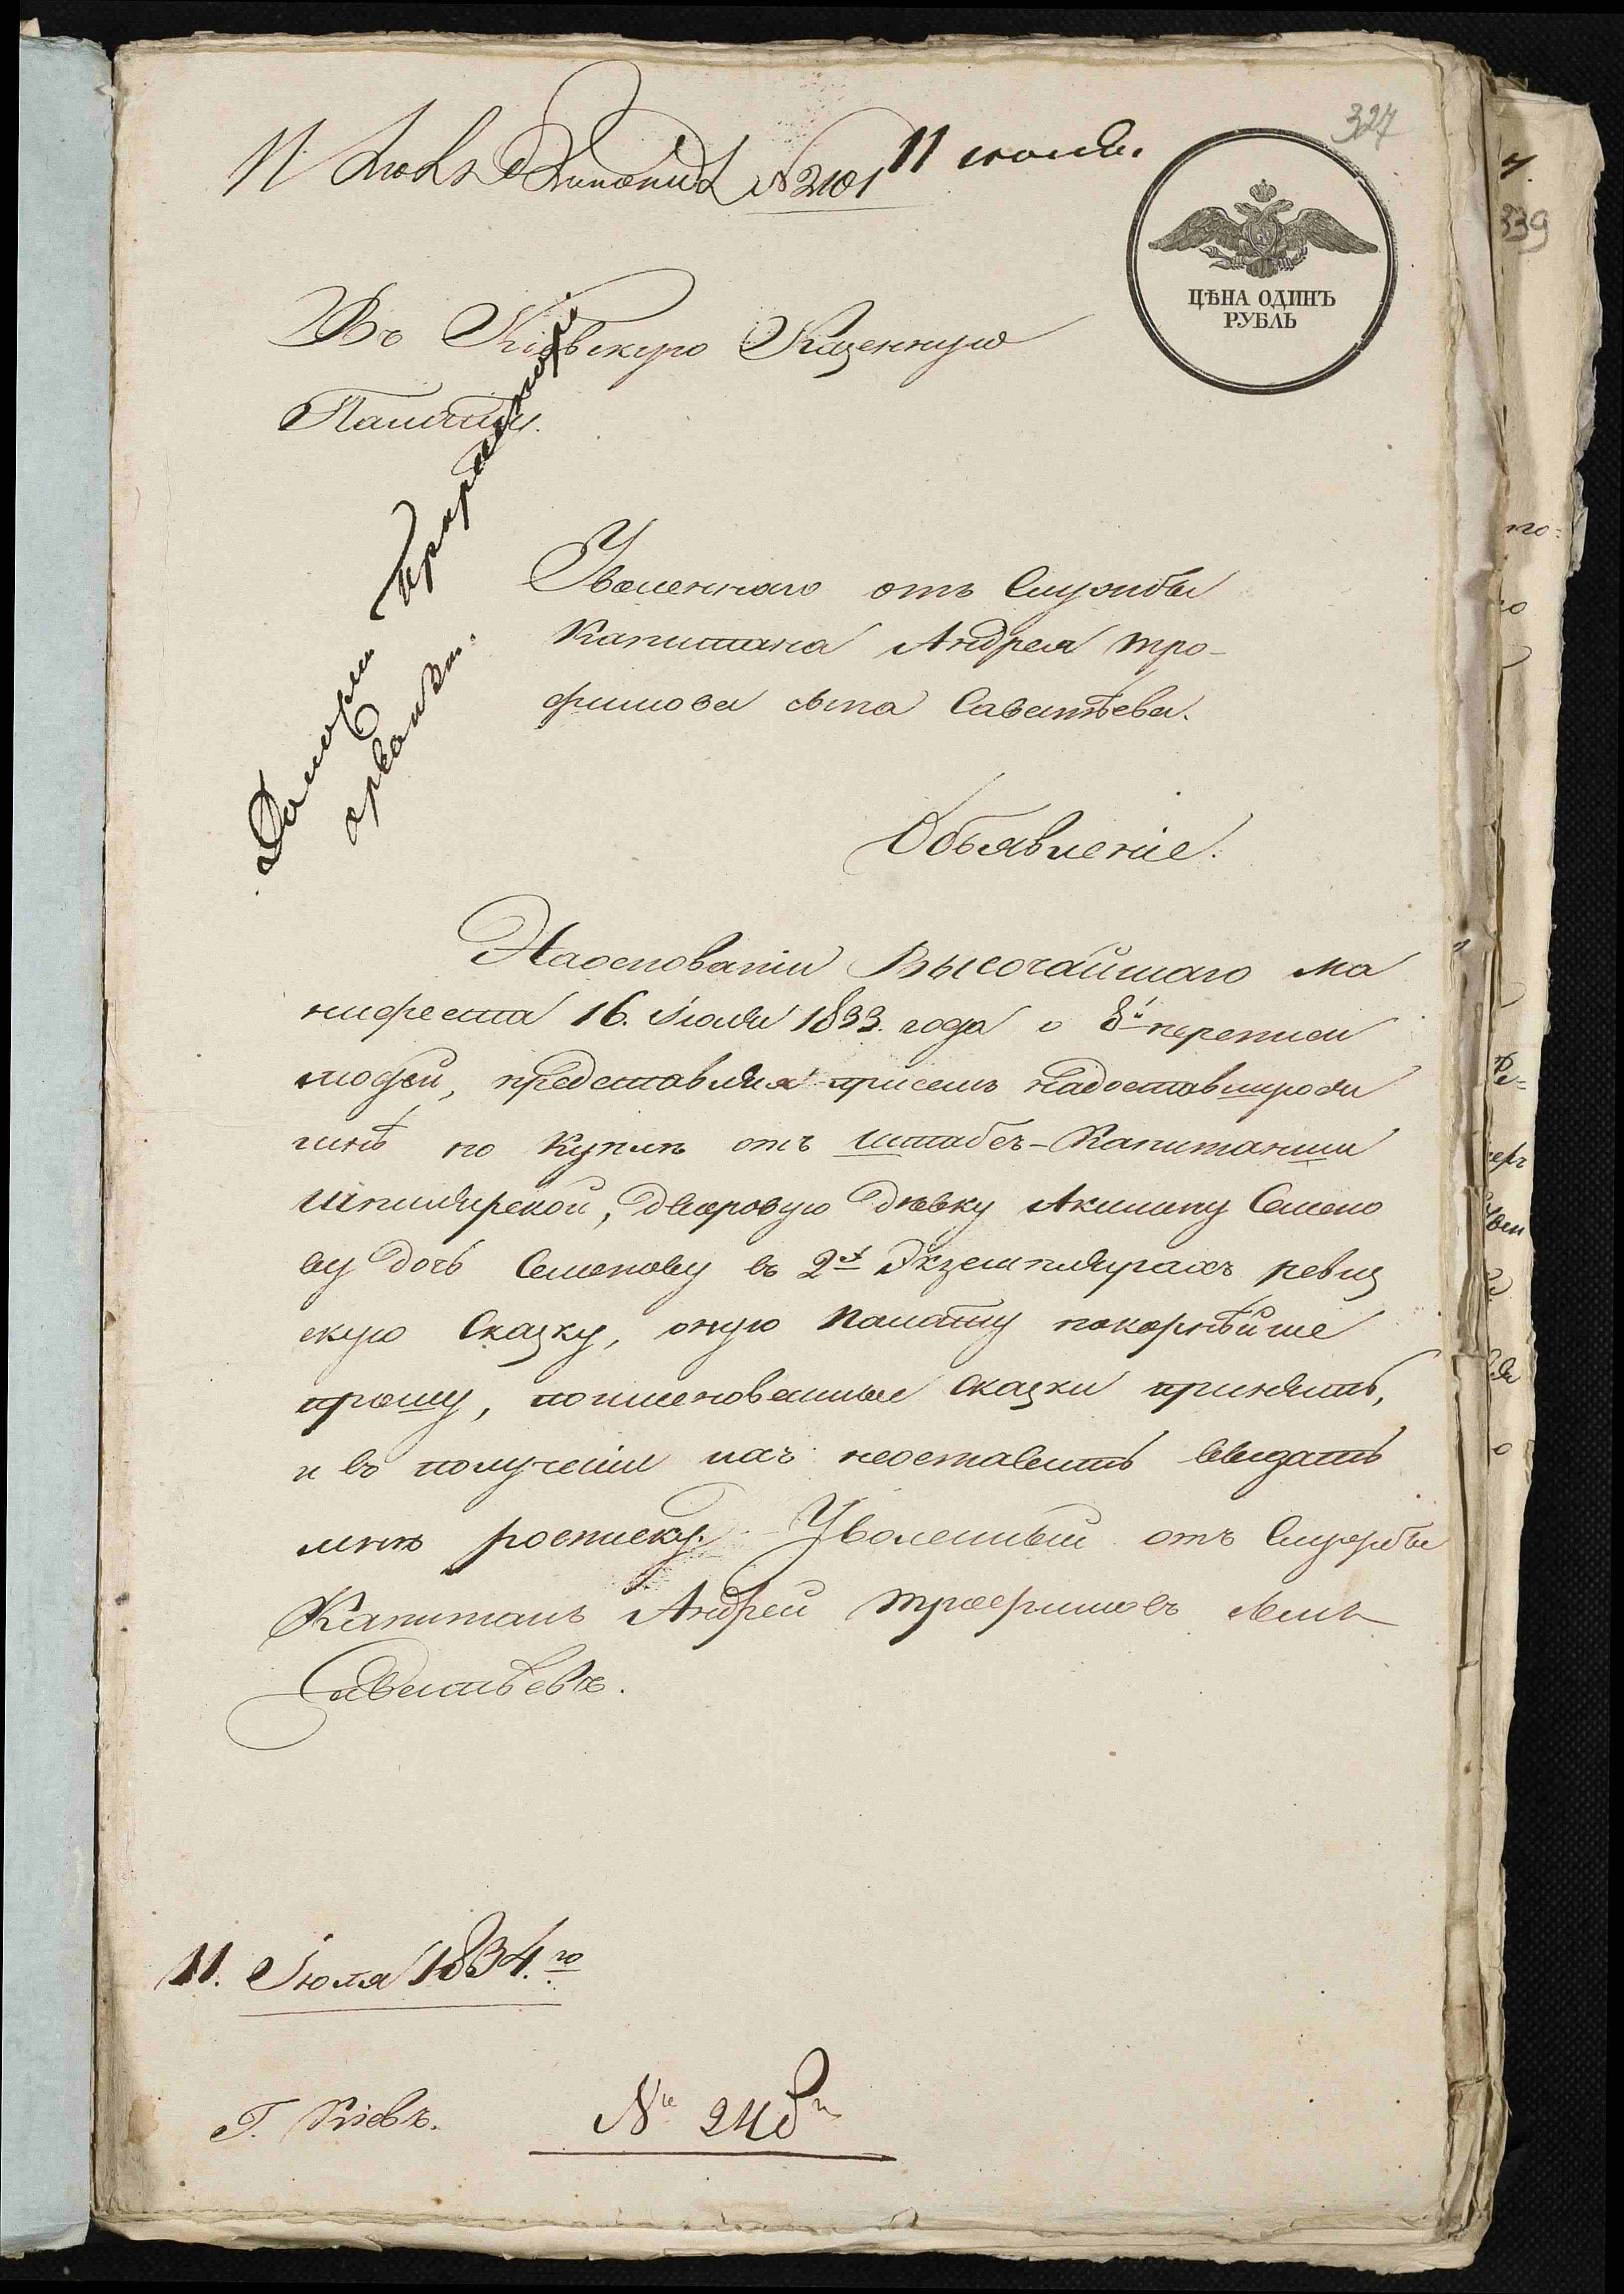 327
11 июля.
№ 2101
ЦѢНА ОДИНЪ
РУБЛЬ
Въ Кіевскую Казенную
Палату.
Уволеннаго отъ Службы
Капитана Андрея Тро-
фимова сына Саватѣева.
Объявленіе.
Наоснованіи Высочайшаго Ма
нифеста 16. Іюля 1833. года о 8й переписи
людей, представляя присемъ надоставшуюся
мнѣ по Купли отъ Штабсъ-Капитанши
Шпилярской, дворовую дѣвку Акилину Семено
ву дочь Семенову въ 2х Экземплярахъ ревиз
скую Сказку, оную Палату покорнѣйше
прошу, поименованные сказки принять,
и въ полученіи ихъ неоставить выдать
мнѣ росписку. Уволенный отъ Службы
Капитанъ Андрей Трофимовъ сынъ
Саватѣевъ.
11. Іюля 1834.го
Г. Кіевъ.
№
339